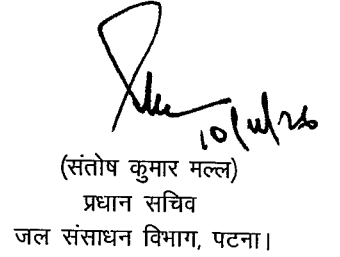 (संतोष कुमार मल्ल)
प्रधान सचिव
जल संसाधन विभाग, पटना।